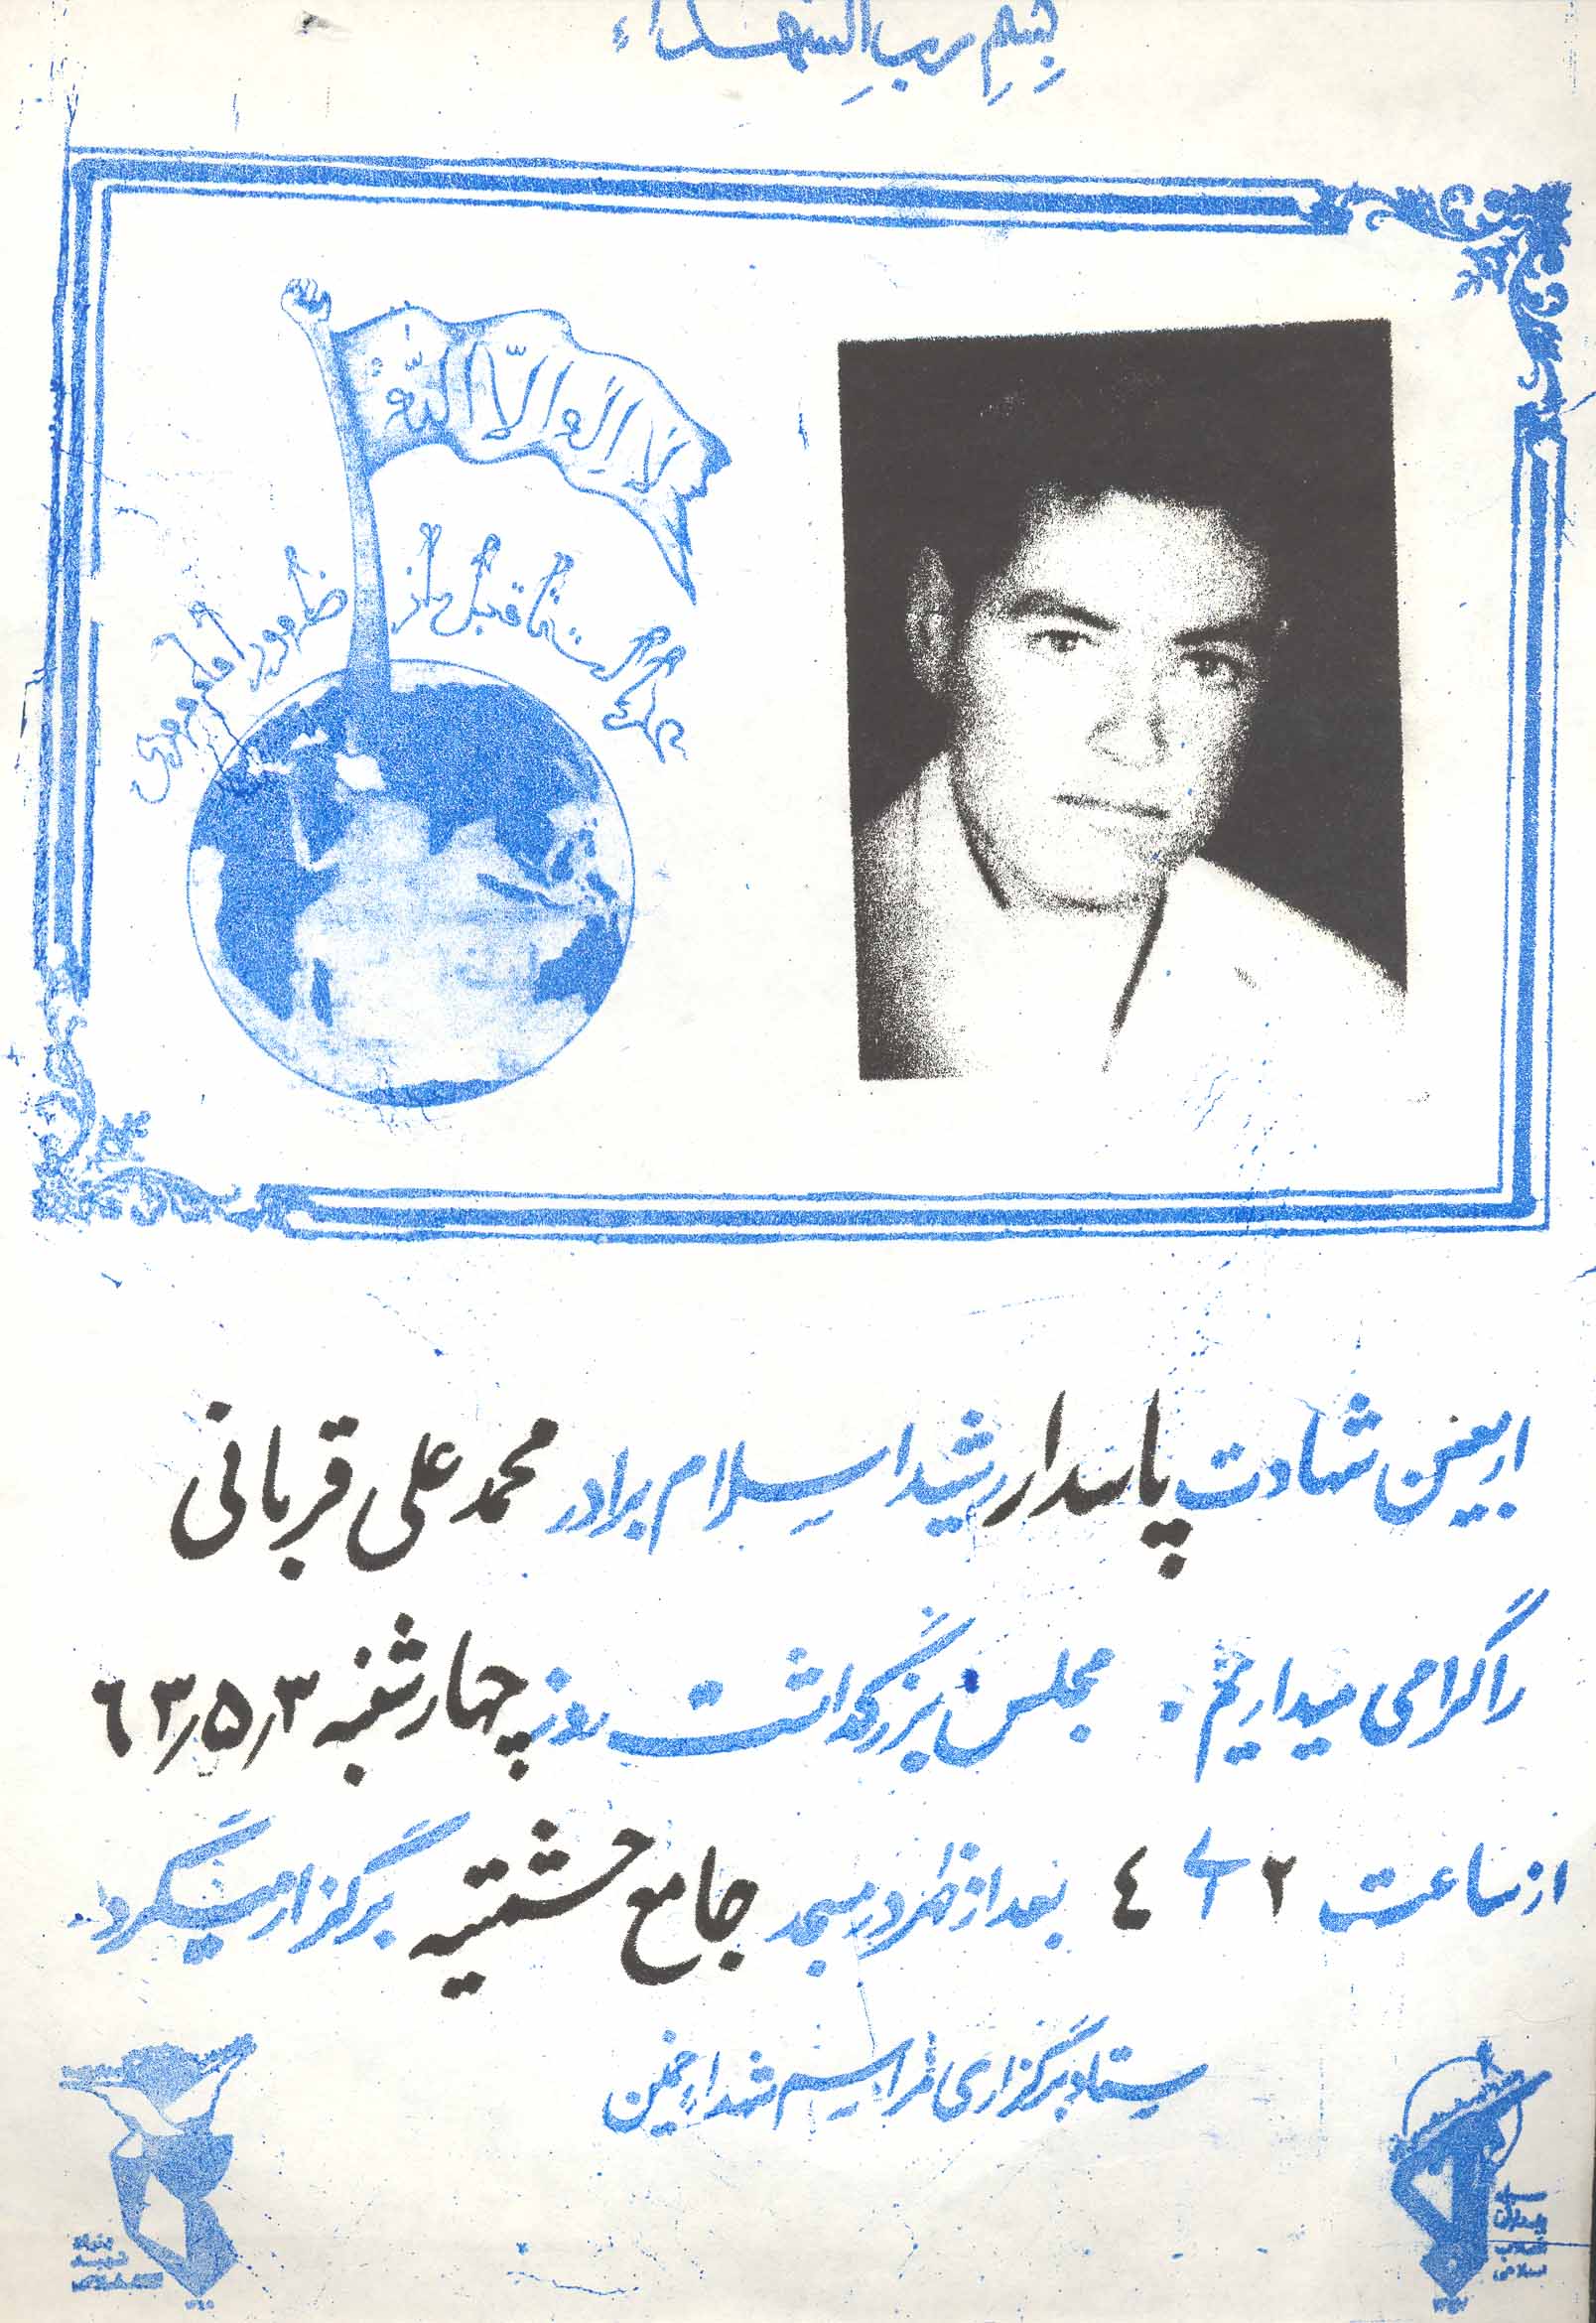 بسم رب الشهداء
لا اله الا الله
قبل از ظهور امام مهدی
اربعین شهادت پاسدار رشید اسلام برادر محمد علی قربانی
را گرامی میداریم. مجلس بزرگداشت روز چهارشنبه ۶۳٫۵٫۳
از ساعت ۲ الی ٤ بعد از ظهر در مسجد جامع حشمتیه برگزار میگردد.
ستاد برگزاری مراسم شهداء خمین
بنیاد
شهید
انقلاب اسلامی
سپاه
پاسداران
انقلاب
اسلامی